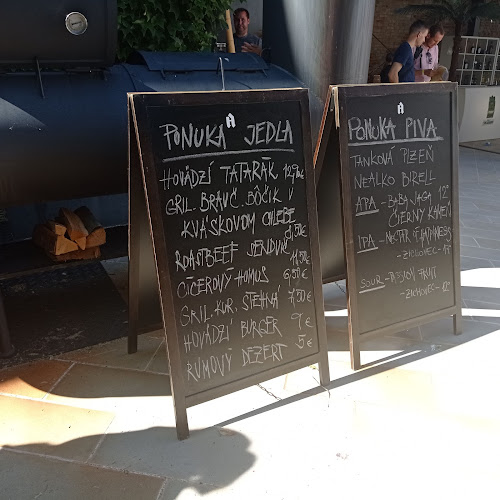 PONUKA JEDLA
HOVÄDZÍ TATARÁK 12,90€
GRIL. BRAVČ. BÔČIK V
KVÁSKOVOM CHLEBE
9,50€
ROASTBEEF SENDVIČ
11,50€
CÍCEROVÝ HOMUS 6,50€
GRIL. KUR. STEHNÁ 7,50€
HOVÄDZÍ BURGER 9€
RUMOVÝ DEZERT 5€
PONUKA PIVA
TANKOVÁ PLZEŇ
NEALKO BIRELL
APA - BABA JAGA 12°
ČIERNY KAMEŇ
IPA - NECTAR OF HAPPINESS
- ZICHOVEC -
SOUR - PASSION FRUIT
- ZICHOVEC - 12°